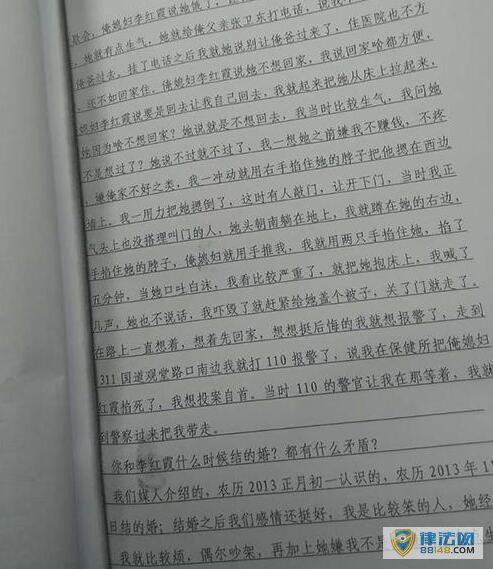 俺媳妇李红霞说她饿了，
她就有点生气，她就给俺父亲张卫东打电话，说我
俺爸过去，挂了电话之后我就她说别让俺爸过来了，住医院也不方
，还不如回家住，俺媳妇李红霞说她不想回家，我说回家啥都方便，
媳妇李红霞说要是回去让我自己回去，我就起来把她从床上拉起来，
她因为啥不想回家？她说就是不想回去，我当时比较生气，我问她
不是想过了？她说不过就不过了，我一想她之前嫌我不赚钱，不疼
，嫌俺家不好之类，我一冲动就用右手掐住她的脖子把他摁在西边
墙上，我一用力把她摁倒了，这时有人敲门，让开下门，当时我正
气头上也没搭理叫门的人，她头朝南躺在地上，我就蹲在她的右边，
手掐住她的脖子，俺媳妇就用手推我，我就用两只手掐住她，掐了
五分钟，当她口吐白沫，我看比较严重了，就把她抱床上，我喊了
几声，她也不说话，我吓毁了就赶紧给她盖个被子，关了门就走了。
在路上一直想着，想着先回家，想想挺后悔的我就想报警了，走到
311 国道观堂路口南边我就打 110 报警了，说我在保健所把俺媳妇
红霞掐死了，我想投案自首。当时 110 的警官让我在那等着，我就
到警察过来把我带走。
你和李红霞什么时候结的婚？都有什么矛盾？
我们媒人介绍的，农历 2013 正月初一认识的，农历 2013 年 1
日结的婚；结婚之后我们感情还挺好，我是比较笨的人，她经
我就比较烦，偶尔吵架，再加上她嫌我不是
律法网
88148.com